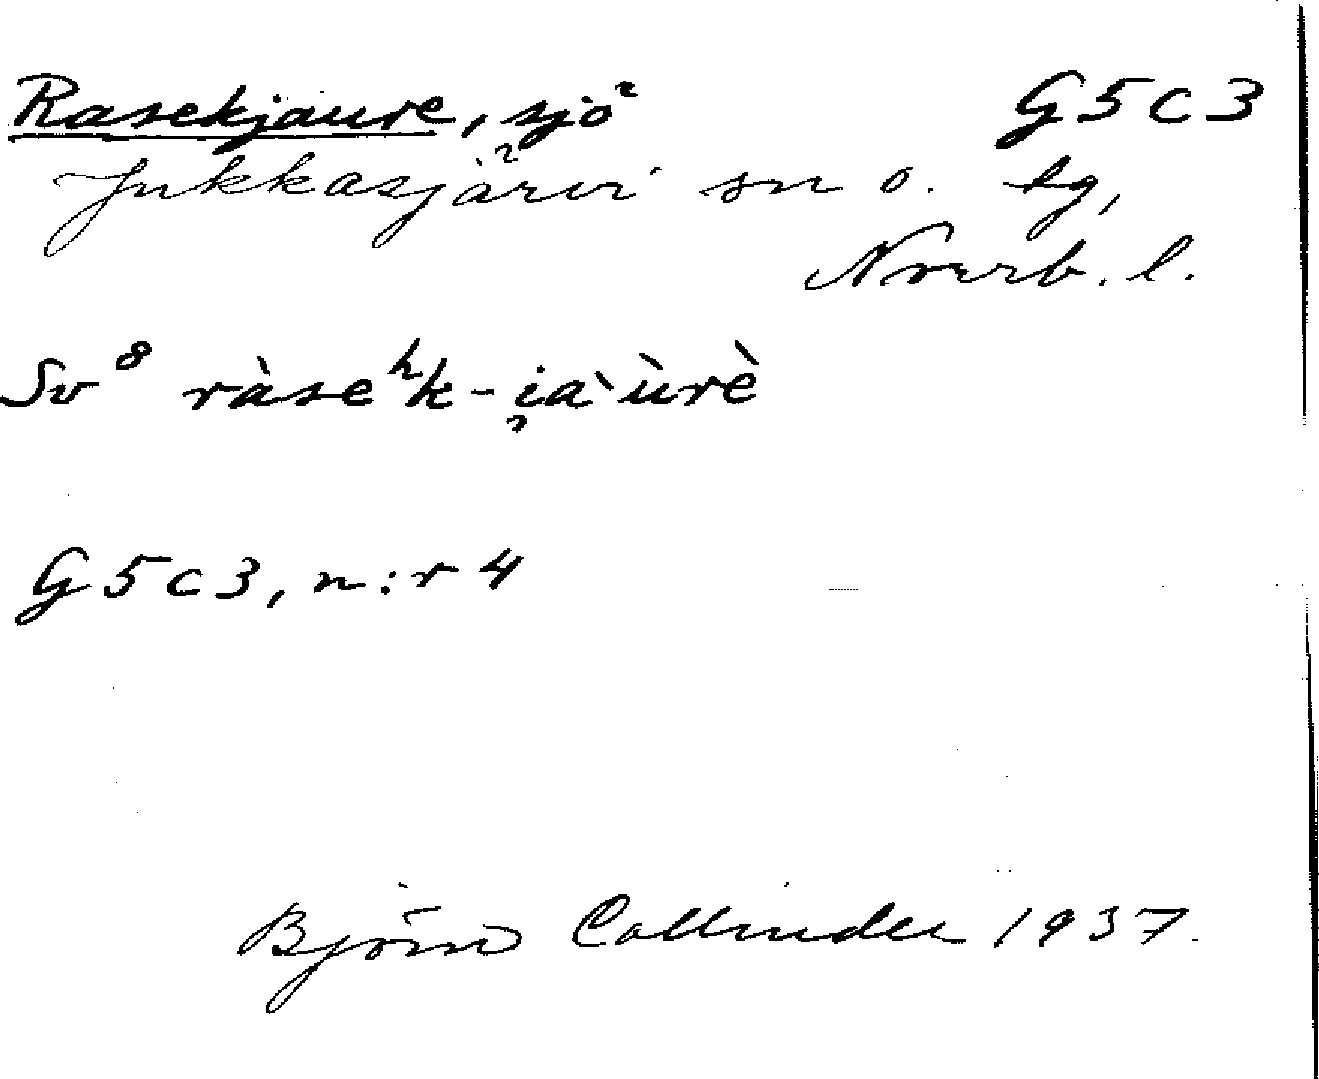 Rasekjaure, sjö G5C3
Jukkasjärvi sn o. tg,
Norrb. l.
Sv 8 ràseʰk-i̯a`ùrè
G5C3, n:r 4
Björn Collinder 1937.